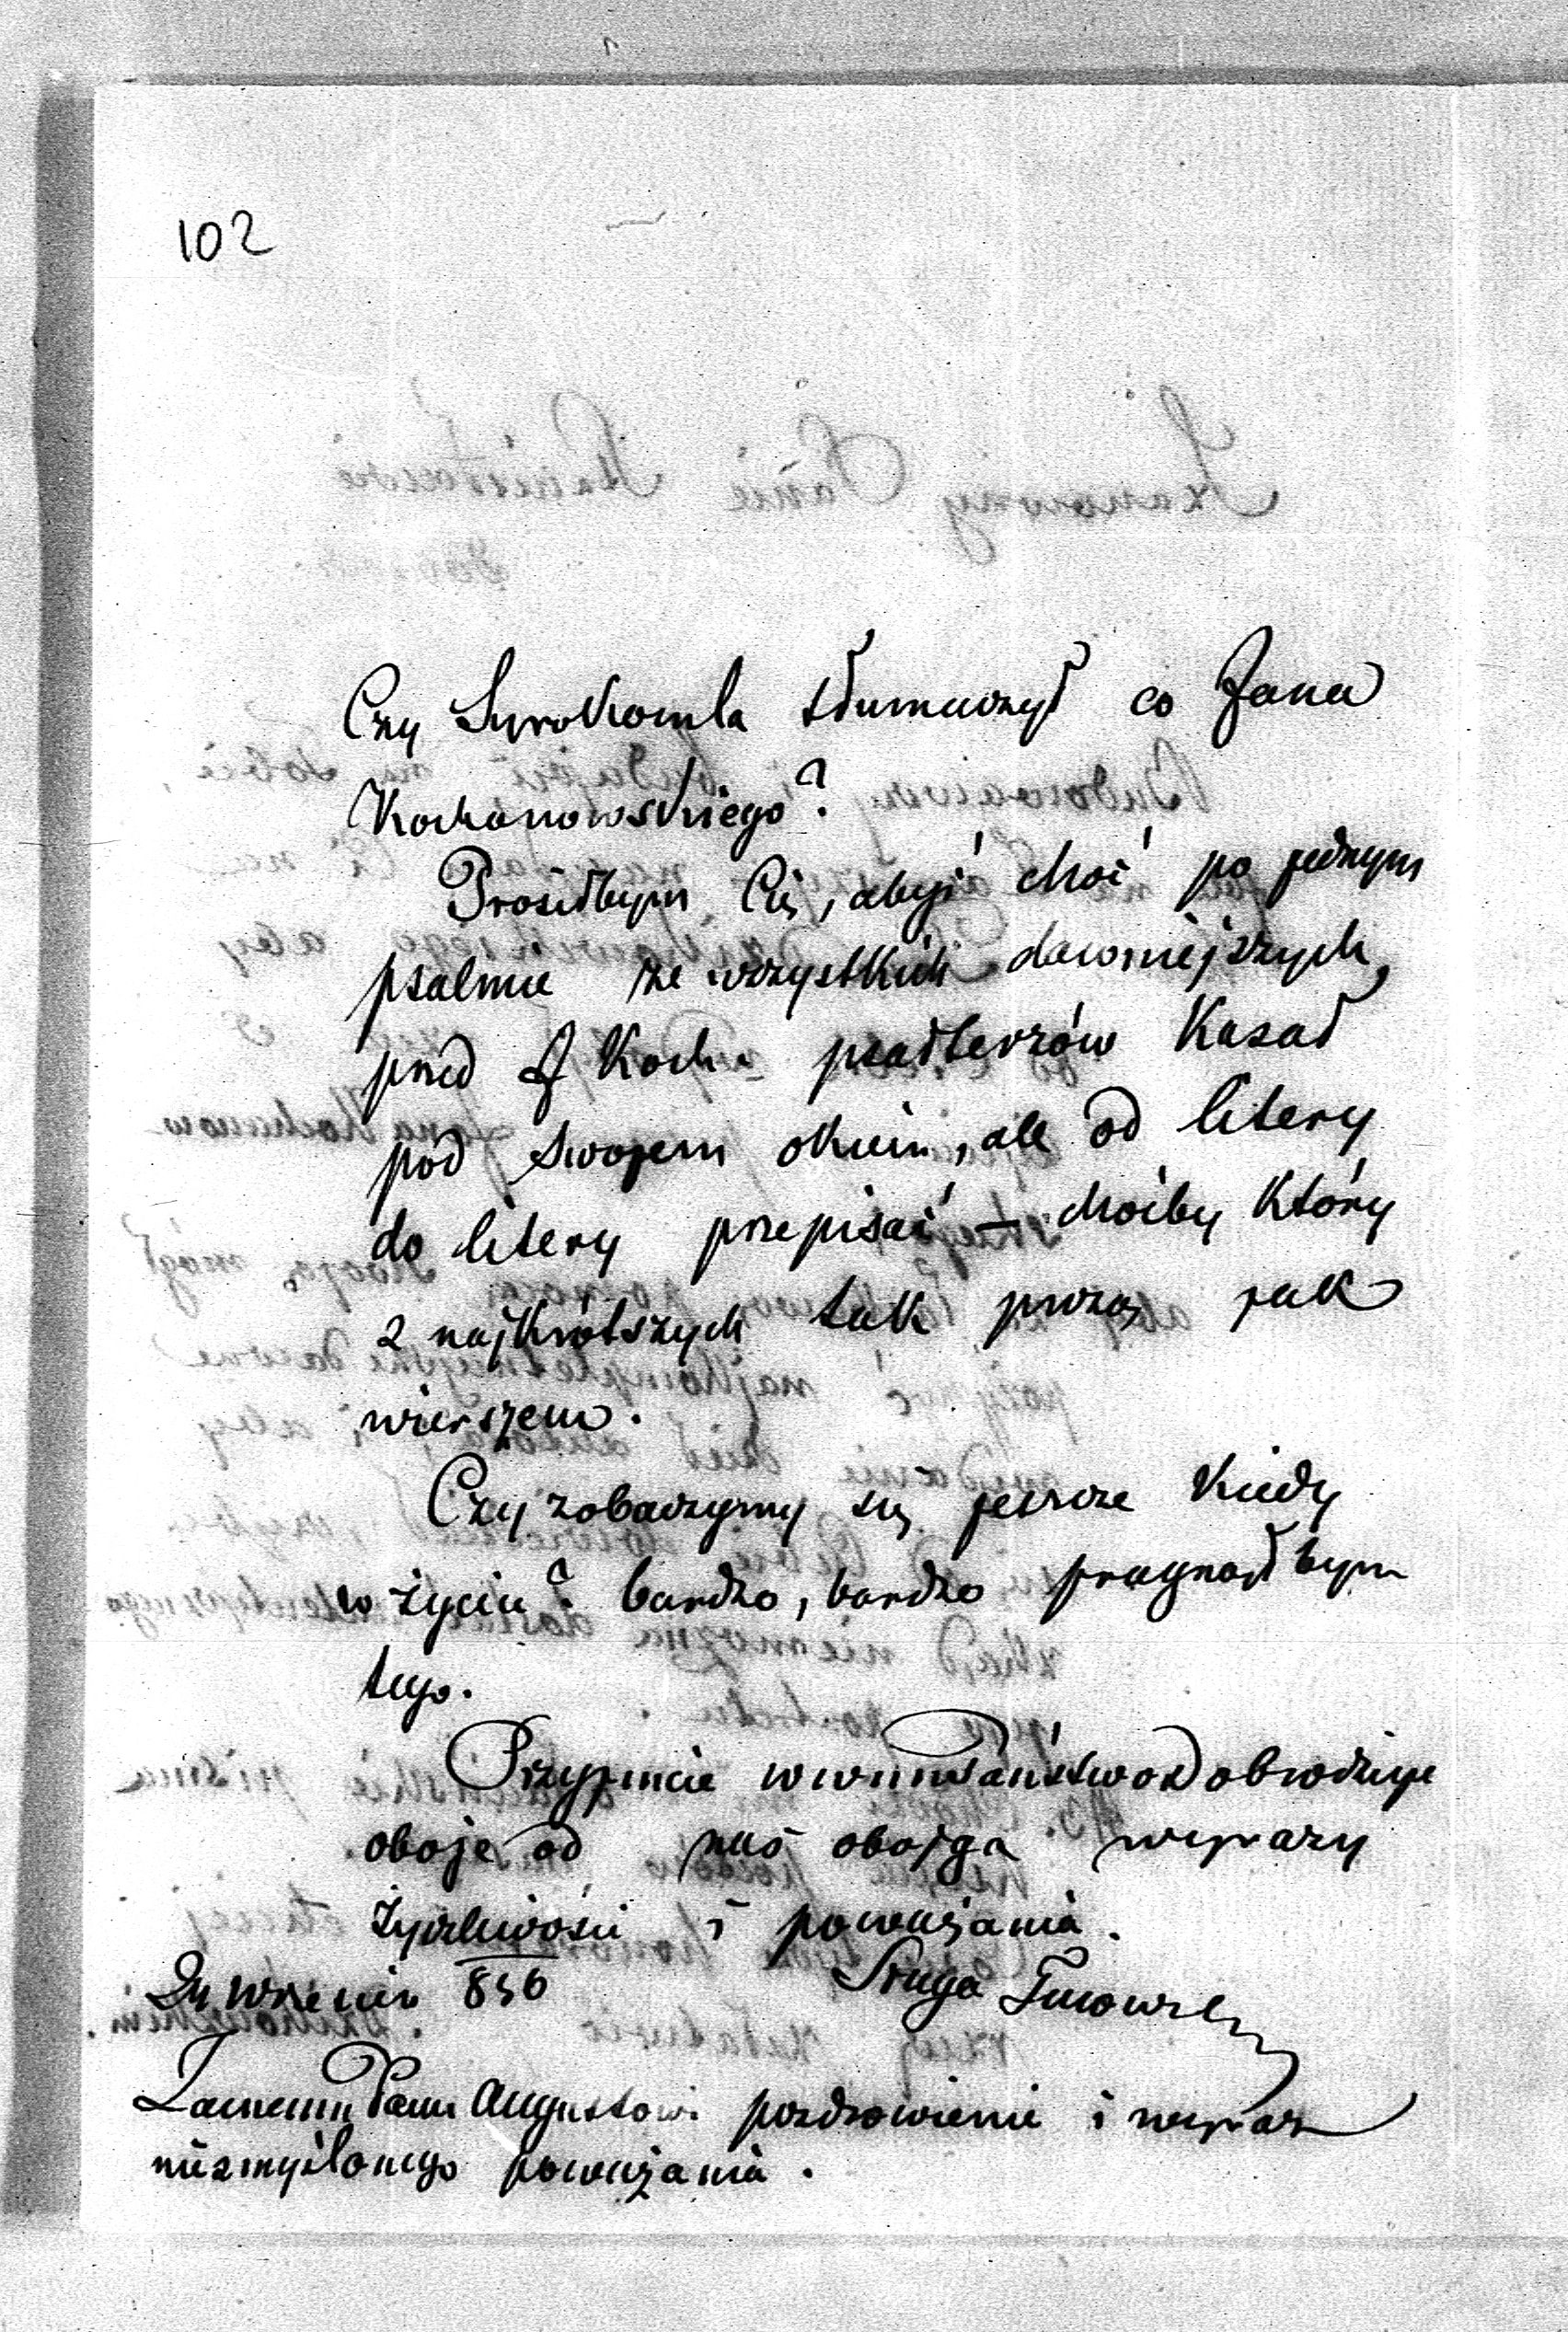 102
Czy Syrokomla tłumaczył co Jana
Kochanowskiego?
Prosiłbym Cię, abyś choć po jednym
psalmie ze wszystkich dawniejszych,
przed J Koch. psałterzów kazał
pod swojem okiem, ale od litery
do litery przepisać – choćby który
z najkrótszych tak prozą jak
wierszem.
Czy zobaczymy się jeszcze kiedy
w życiu? bardzo, bardzo pragnąłbym
tego.
Przyjmcie Państwo Dobrodzieje
oboje od nas obojga wyrazy
życzliwości i poważania.
Sługa
24 września 856
Panu Augustowi pozdrowienie i wyraz
niezmyślonego poważania.